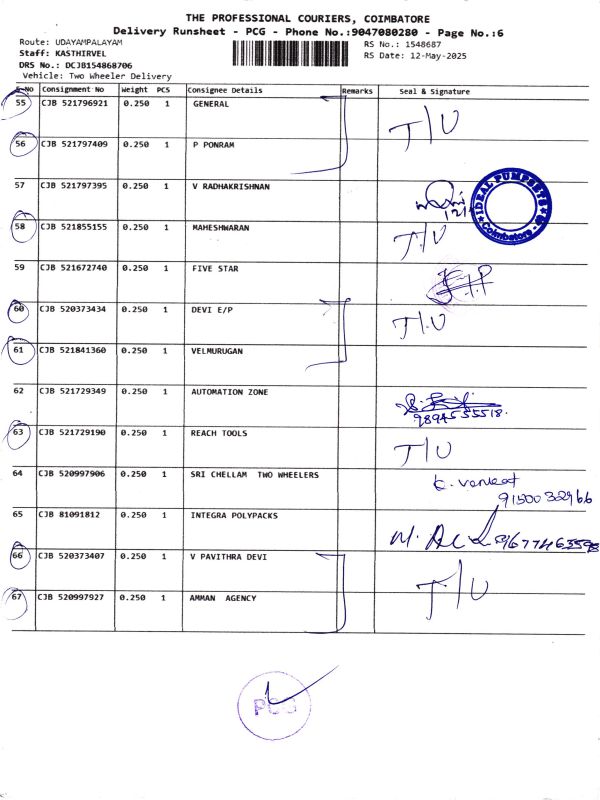 THE PROFESSIONAL COURIERS, COIMBATORE
Delivery Runsheet - PCG - Phone No.:9047080280 - Page No.:6
Route: UDAYAMPALAYAM
RS No.: 1548687
Staff: KASTHIRVEL
RS Date: 12-May-2025
DRS No.: DCJB154868706
Vehicle: Two Wheeler Delivery
S.No Consignment No Weight PCS Consignee Details Remarks Seal & Signature
55 CJB 521796921 0.250 1 GENERAL T/U
56 CJB 521797409 0.250 1 P PONRAM
57 CJB 521797395 0.250 1 V RADHAKRISHNAN
IDEAL PUMPSETS
Coimbatore
58 CJB 521855155 0.250 1 MAHESHWARAN T/U
59 CJB 521672740 0.250 1 FIVE STAR
60 CJB 520373434 0.250 1 DEVI E/P T/U
61 CJB 521841360 0.250 1 VELMURUGAN
62 CJB 521729349 0.250 1 AUTOMATION ZONE
9894555518.
63 CJB 521729190 0.250 1 REACH TOOLS T/U
64 CJB 520997906 0.250 1 SRI CHELLAM TWO WHEELERS K. Venkat
9150032966
65 CJB 81091812 0.250 1 INTEGRA POLYPACKS
66 CJB 520373407 0.250 1 V PAVITHRA DEVI T/U
67 CJB 520997927 0.250 1 AMMAN AGENCY